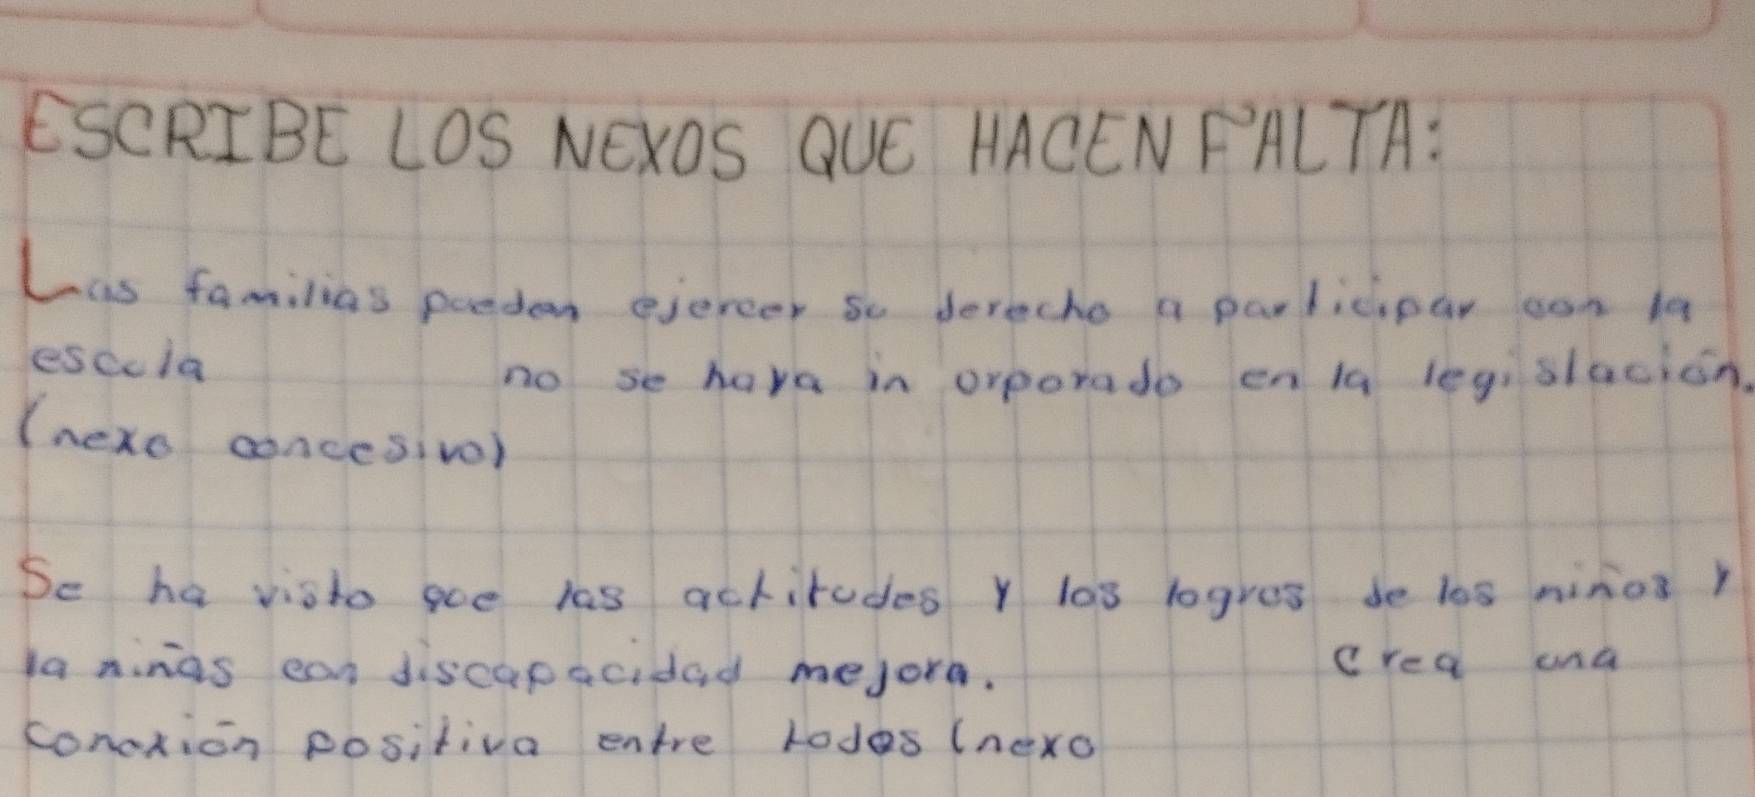 ESCRIBE LOS NEXOS QUE HACEN FALTA:
Las familias pueden ejercer su derecho a participar con la
escula no se haya in orporado en la legislación.
(nexo concesivo)
Se ha visto que las actitudes y los logros de los niños y
la niñas con discapacidad mejora. crea una
conexión positiva entre todos (nexo